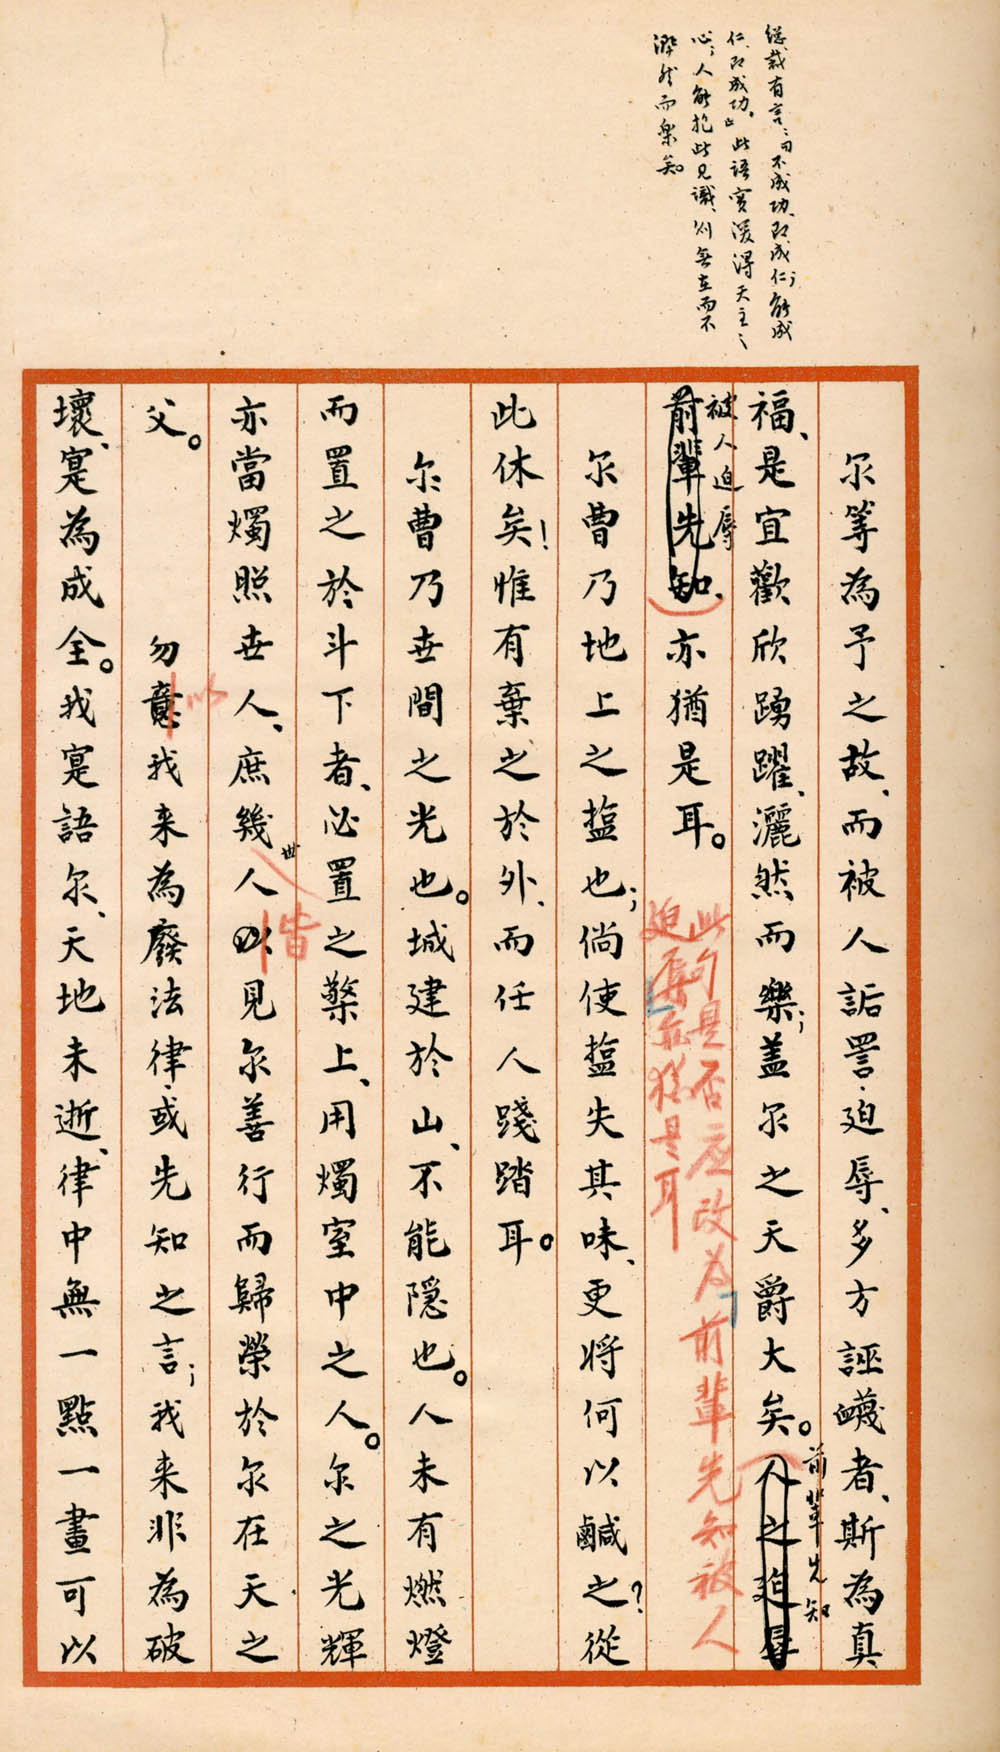 總裁有言：「不成功、即成仁；能成
仁、即成功。」此語實深得天主之
心；人能抱此見識、則無在而不
灑然而樂矣。
尔等為予之故、而被人詬詈、迫辱、多方誣衊者、斯為真
福、是宜歡欣踴躍、灑然而樂；蓋尔之天爵大矣。人之迫辱
前輩先知
被人迫辱
前輩先知、亦猶是耳。
此句是否應改為「前輩先知被人
迫辱亦猶是耳
尔曹乃地上之塩也；倘使塩失其味、更將何以鹹之？從
此休矣！惟有棄之於外、而任人踐踏耳。
尔曹乃世間之光也。城建於山、不能隱也。人未有燃燈
而置之於斗下者、必置之檠上、用燭室中之人。尔之光輝
亦當燭照世人、庶幾人以見尔善行而歸榮於尔在天之
世
皆
父。
勿意我来為廢法律、或先知之言；我来非為破
以
壞、寔為成全。我寔語尔、天地未逝、律中無一點一畫可以